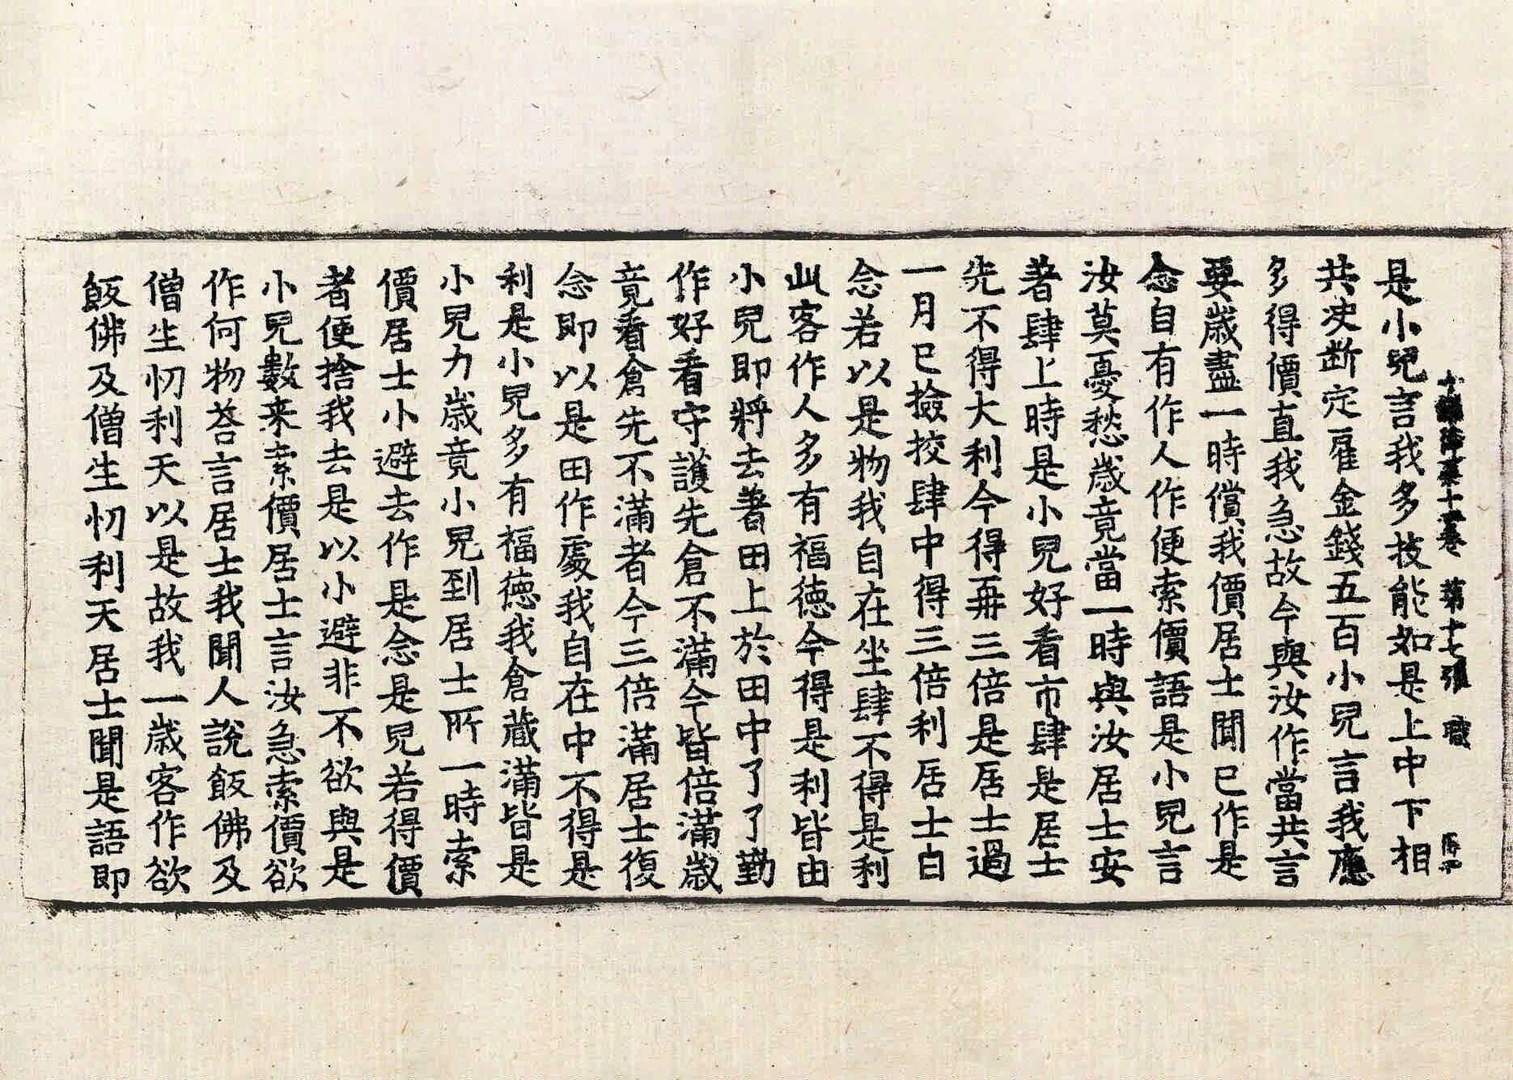 十誦律第十二卷 第十七張 職
是小兒言我多技能如是上中下相
共决断定雇金錢五百小兒言我應
多得價直我急故今與汝作當共言
要歲盡一時償我價居士聞已作是
念自有作人作便索價語是小兒言
汝莫憂愁歲竟當一時與汝居士安
著肆上時是小兒好看市肆是居士
先不得大利今得再三倍是居士過
一月已撿挍肆中得三倍利居士白
念若以是物我自在坐肆不得是利
此客作人多有福德今得是利皆由
小兒即將去著田上於田中了了勤
作好看守護先倉不滿今皆倍滿歲
竟看倉先不滿者今三倍滿居士復
念即以是田作處我自在中不得是
利是小兒多有福德我倉藏滿皆是
小兒力歲竟小兒到居士所一時索
價居士小避去作是念是兒若得價
者便捨我去是以小避非不欲與是
小兒數来索價居士言汝急索價欲
作何物荅言居士我聞人說飯佛及
僧生忉利天以是故我一歲客作欲
飯佛及僧生忉利天居士聞是語即